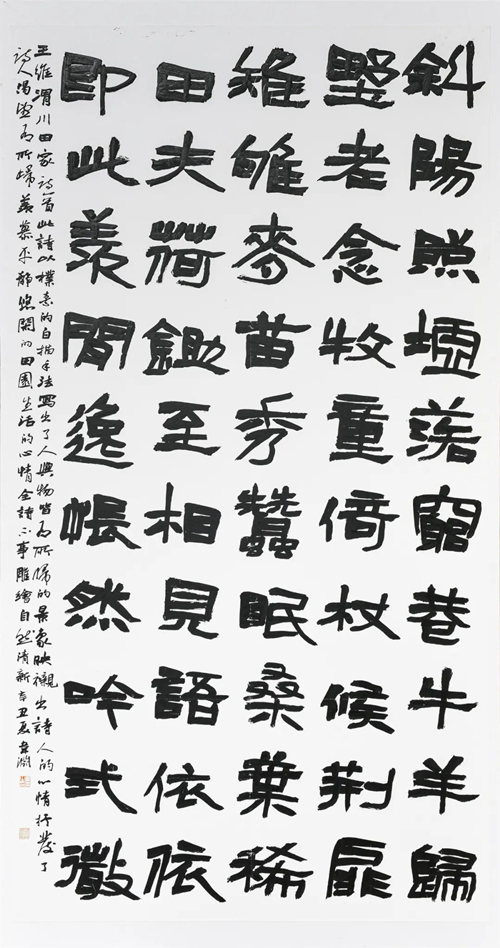 斜陽照墟落窮巷牛羊歸
野老念牧童倚杖候荊扉
雉雊麥苗秀蠶眠桑葉稀
田夫荷鋤至相見語依依
即此羨閒逸悵然吟式微
王維渭川田家詩一首此詩以樸素的白描手法寫出了人與物皆有所歸的景象映襯出詩人的心情抒發了
詩人渴望有所歸羨慕平靜悠閒的田園生活的心情全詩不事雕繪自然清新辛丑夏